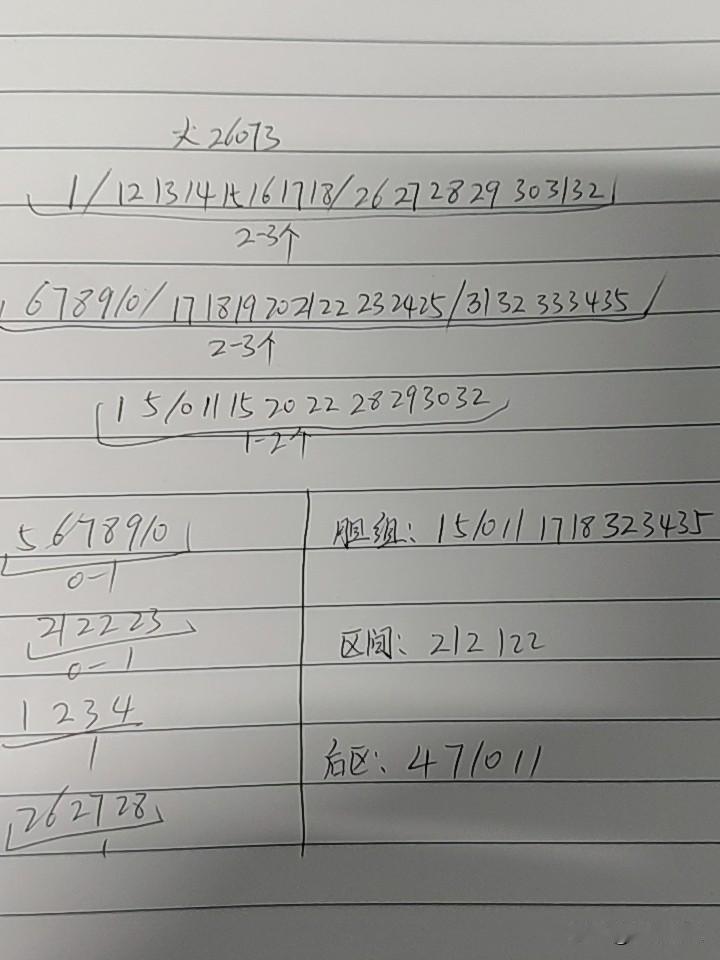 大26073
1/12 13 14 15 16 17 18/26 27 28 29 30 31 32
2-3个
6 7 8 9 10/17 18 19 20 21 22 23 24 25/31 32 33 34 35/
2-3个
1 5 10 11 15 20 22 28 29 30 32
1-2个
5 6 7 8 9 10
0-1
21 22 23
0-1
1 2 3 4
1
26 27 28
1
胆组: 1 5 10 11 17 18 32 34 35
区间: 212 122
后区: 4 7 10 11